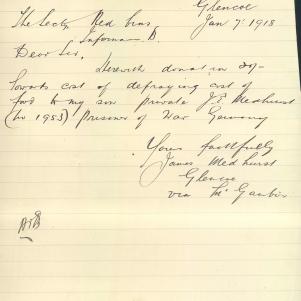 Glencoe
Jan 7. 1918
The Secty Red Cross
Informan B
Dear Sir,
Herewith donation 20/-
towards cost of defraying cost of
food to my son private J.E. Medhurst
(No 1953) Prisoner of War Germany
Yours faithfully
James Medhurst
Glencoe
via Mt Gambier